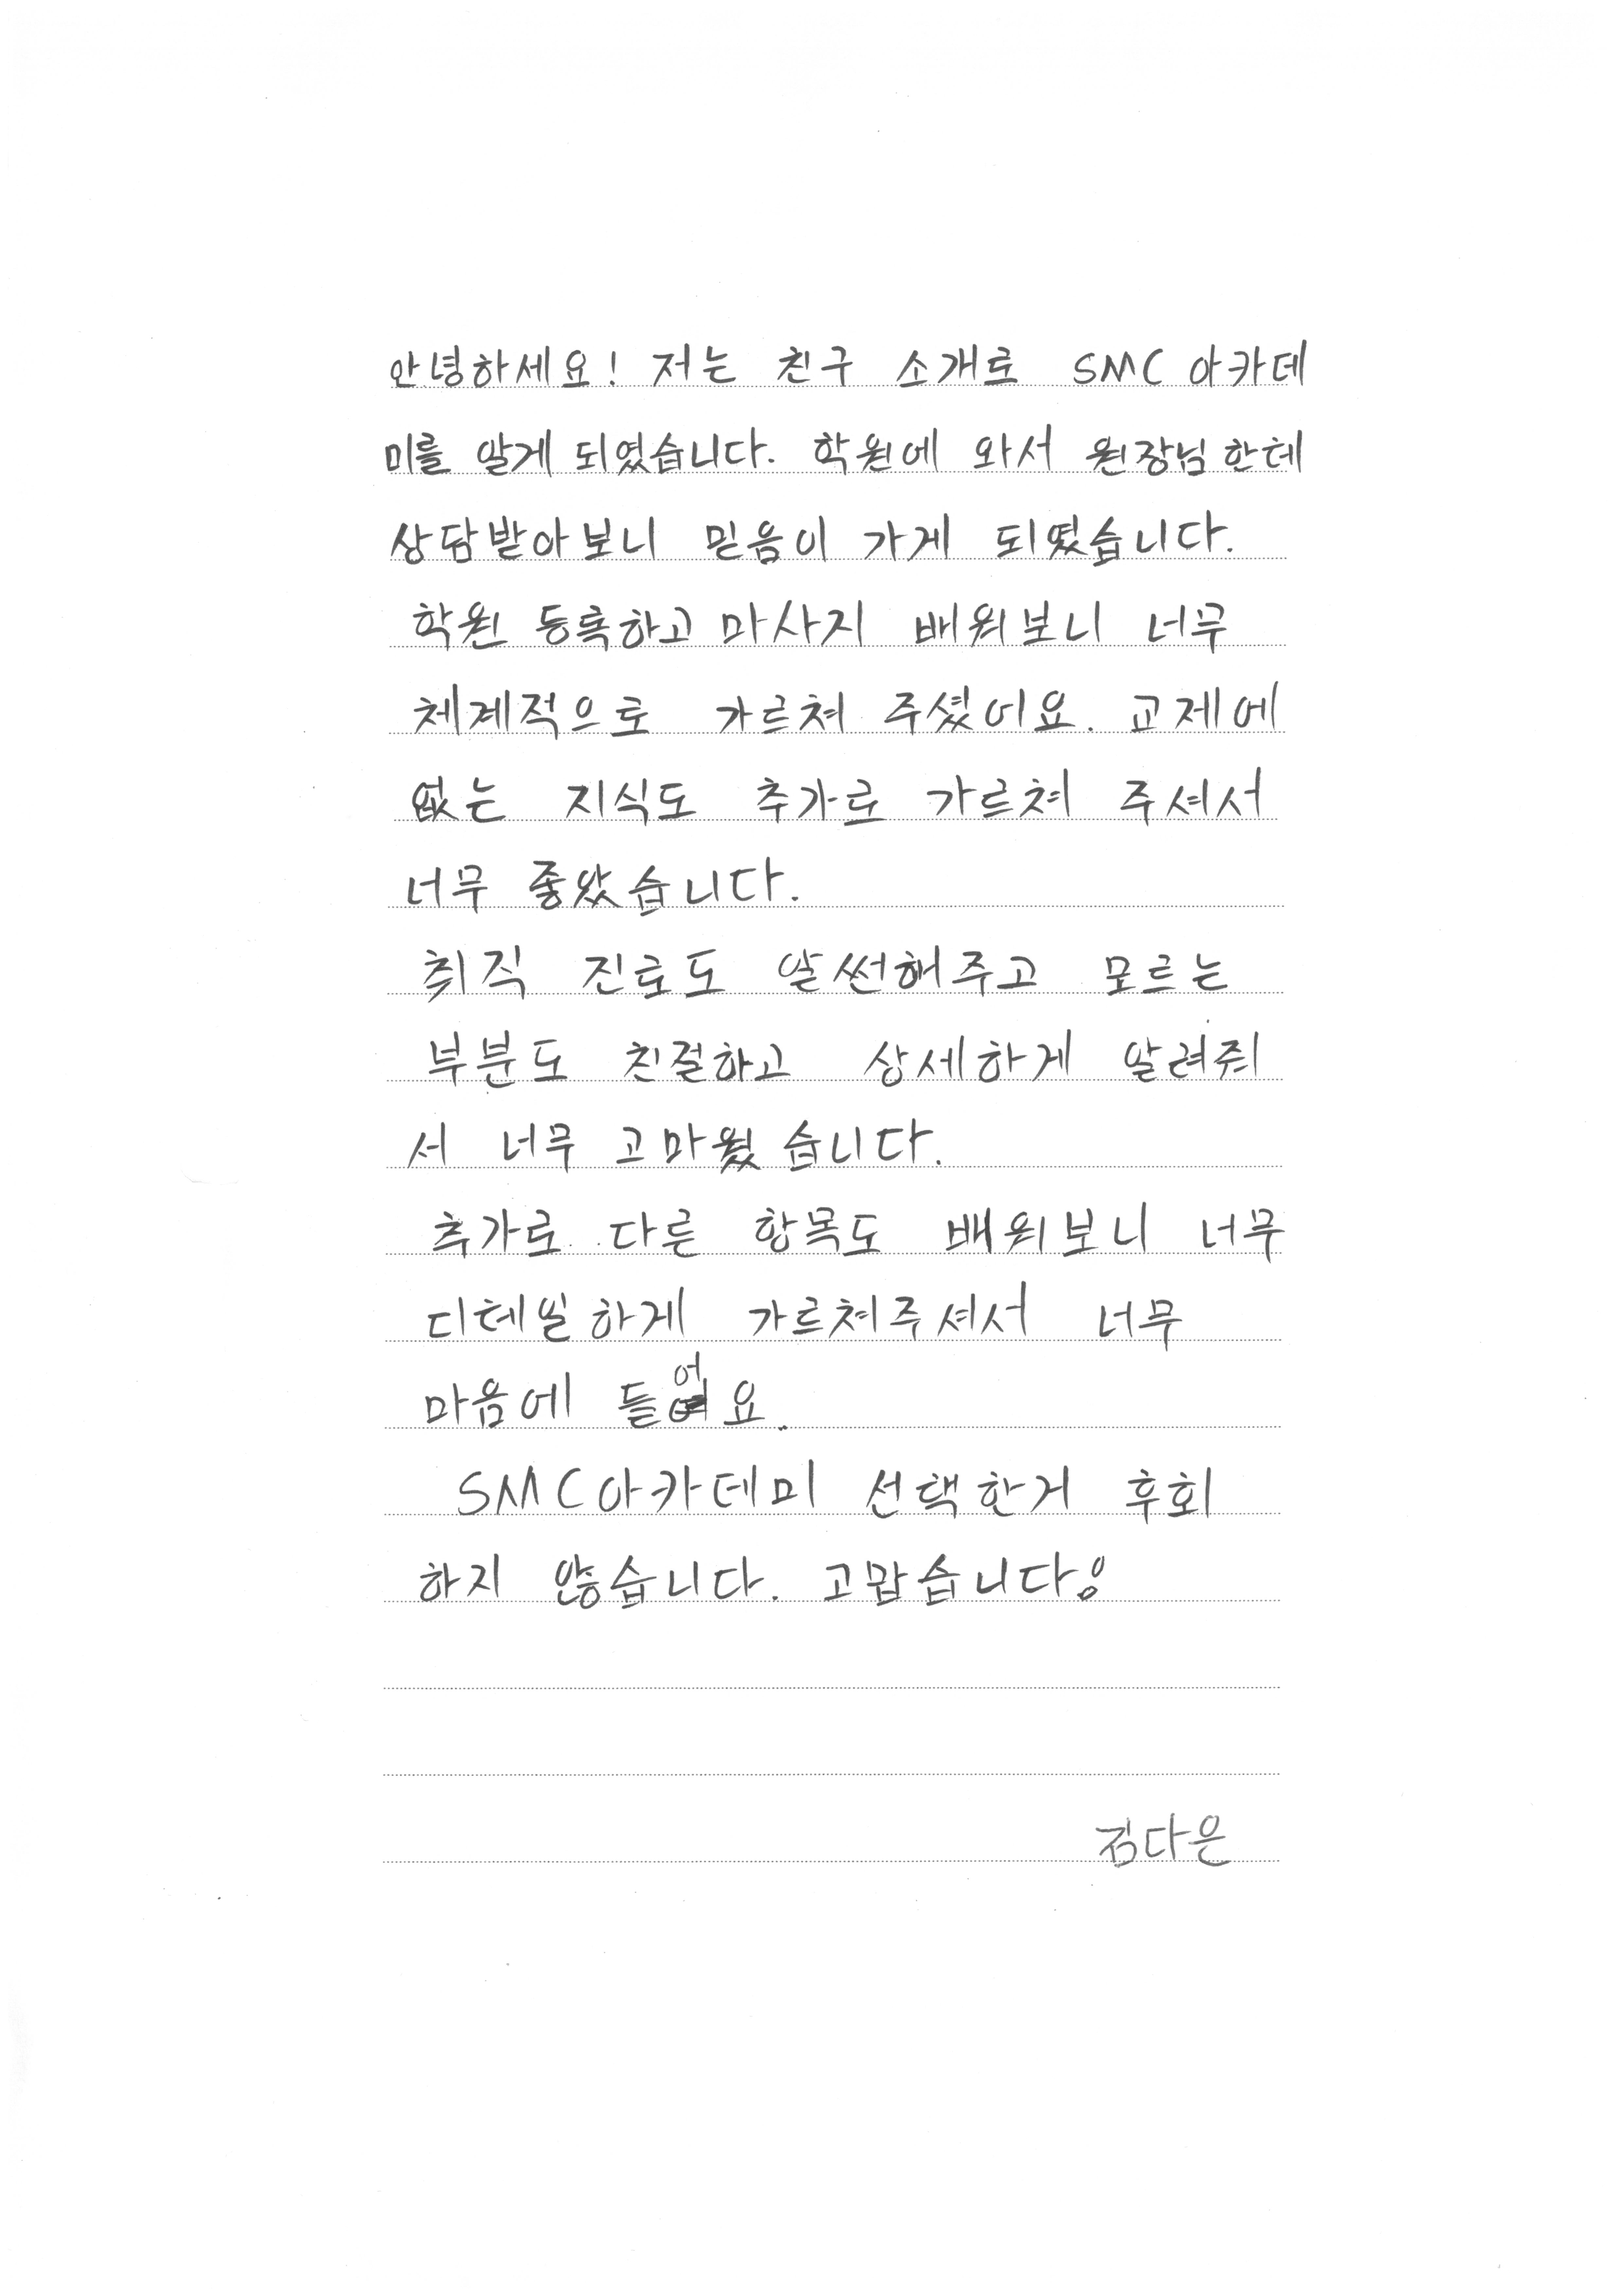 안녕하세요! 저는 친구 소개로 SMC 아카데
미를 알게 되였습니다. 학원에 와서 원장님한테
상담받아보니 믿음이 가게 되였습니다.
학원 등록하고 마사지 배워보니 너무
체계적으로 가르쳐 주셨어요. 교제에
없는 지식도 추가로 가르쳐 주셔서
너무 좋았습니다.
취직 진로도 알썬해주고 모르는
부분도 친절하고 상세하게 알려줘
서 너무 고마웠습니다.
추가로 다른 항목도 배워보니 너무
디테일하게 가르쳐주셔서 너무
마음에 들어요.
SMC아카데미 선택한거 후회
하지 않습니다. 고맙습니다.
김다은